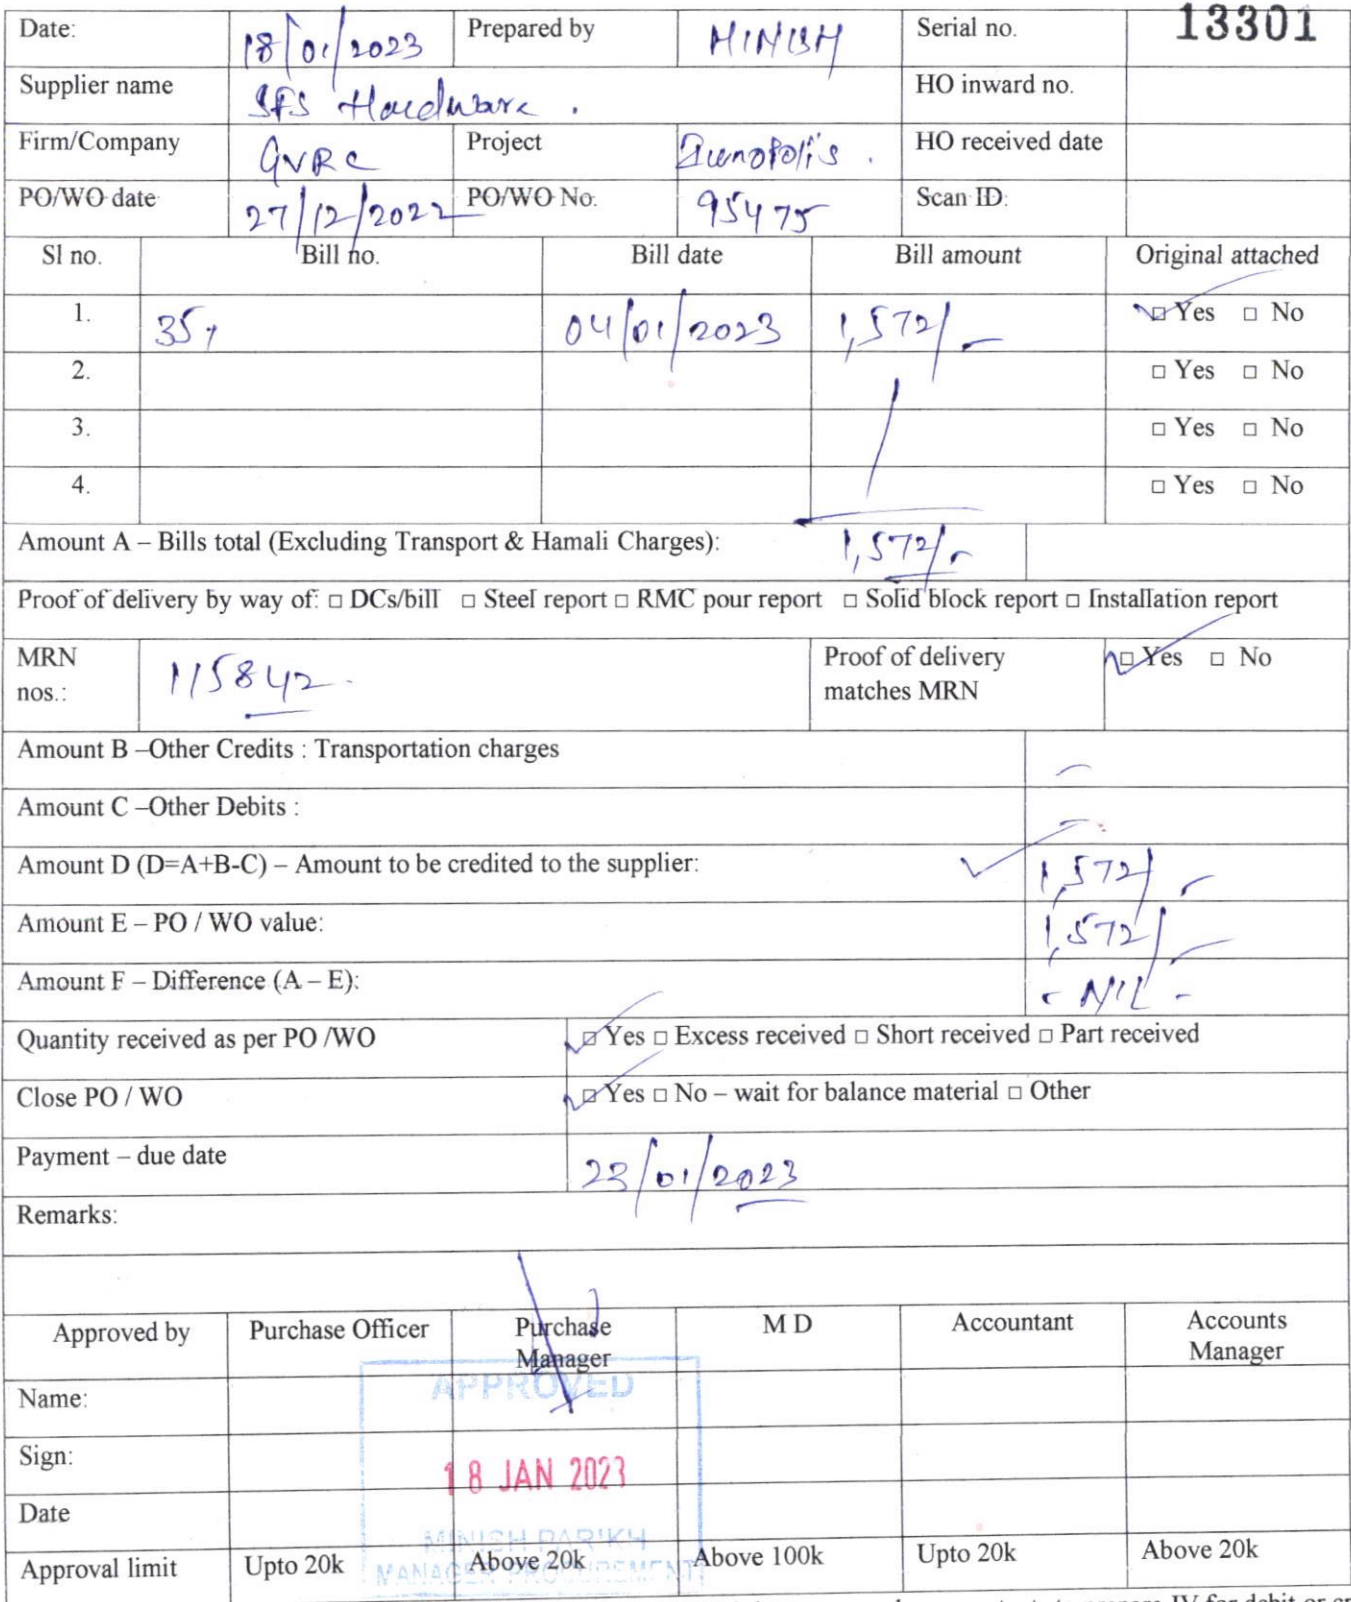 Date: 18/01/2023 Prepared by MINISH Serial no. 13301
Supplier name SFS Hardware. HO inward no.
Firm/Company GVRC Project HO received date
PO/WO date 27/12/2022 PO/WO No. 95475 Scan ID:
Sl no. Bill no. Bill date Bill amount Original attached
1. 35, 04/01/2023 1,572/- ☑ Yes □ No
2. □ Yes □ No
3. □ Yes □ No
4. □ Yes □ No
Amount A – Bills total (Excluding Transport & Hamali Charges): 1,572/-
Proof of delivery by way of: □ DCs/bill □ Steel report □ RMC pour report □ Solid block report □ Installation report
MRN nos.: 115842. Proof of delivery matches MRN ☑ Yes □ No
Amount B –Other Credits : Transportation charges -
Amount C –Other Debits : -
Amount D (D=A+B-C) – Amount to be credited to the supplier: ✓ 1,572/-
Amount E – PO / WO value: 1,572/-
Amount F – Difference (A – E): - NIL -
Quantity received as per PO /WO ☑ Yes □ Excess received □ Short received □ Part received
Close PO / WO ☑ Yes □ No – wait for balance material □ Other
Payment – due date 23/01/2023
Remarks:
Approved by Purchase Officer Purchase Manager M D Accountant Accounts Manager
APPROVED
Name:
Sign:
18 JAN 2023
Date
MINISH PARIKH
MANAGER PROCUREMENT
Approval limit Upto 20k Above 20k Above 100k Upto 20k Above 20k